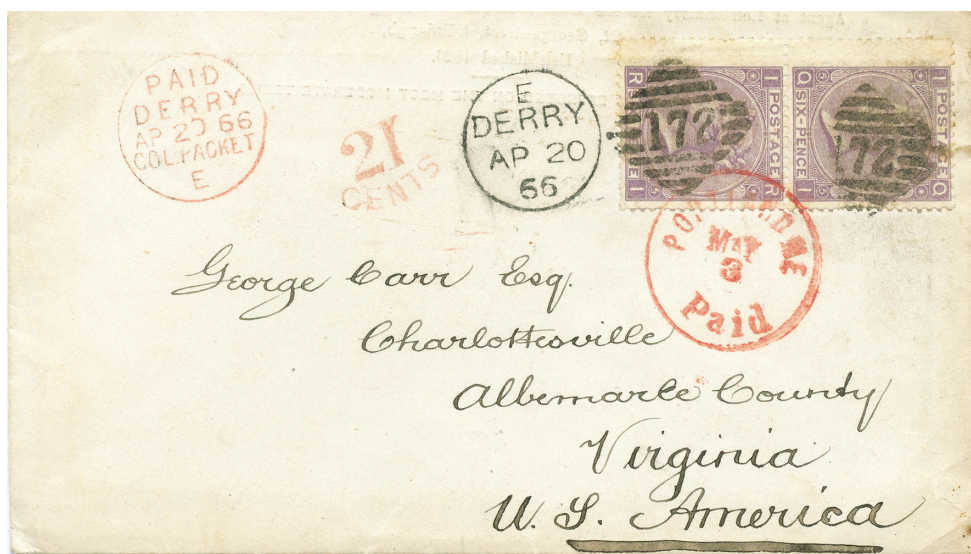 PAID
DERRY
AP 20 66
COL. PACKET
E
21
CENTS
E
DERRY
AP 20
66
R I
POSTAGE
I R
172
Q I
SIX-PENCE
POSTAGE
I Q
172
PORTLAND ME
MAY
3
Paid
George Carr Esq.
Charlottesville
Albemarle County
Virginia
U. S. America